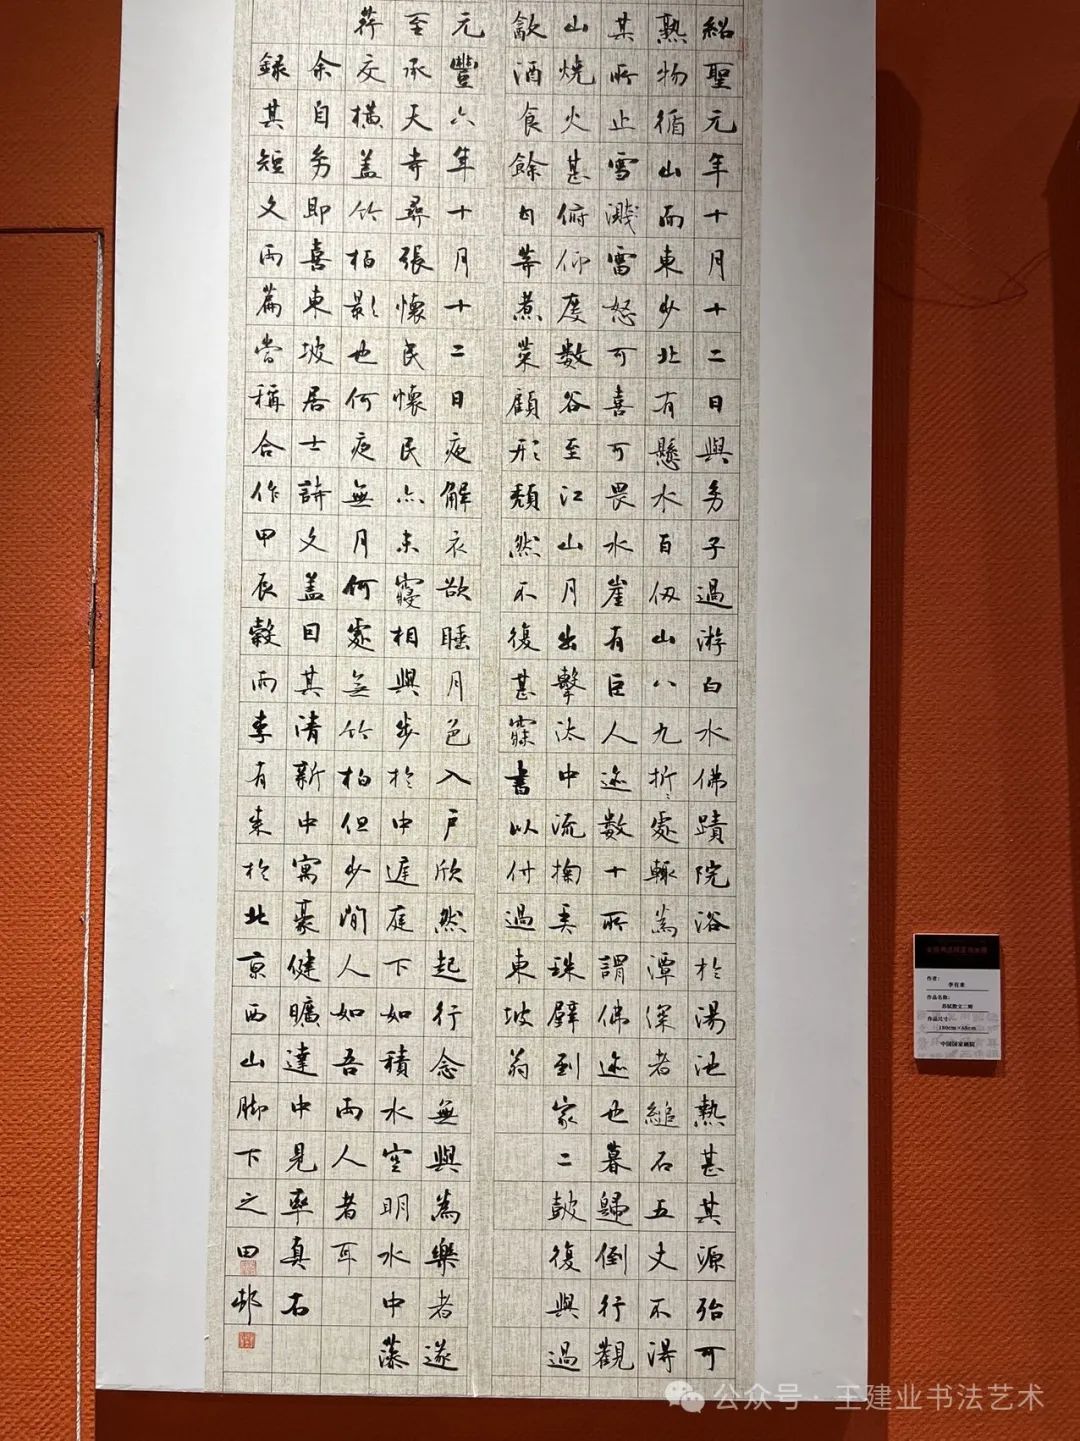 紹聖元年十月十二日與幼子過游白水佛蹟院浴於湯池熱甚其源殆可
熟物循山而東少北有懸水百仞山八九折〻處輒為潭深者縋石五丈不得
其所止雪濺雷怒可喜可畏水崖有巨人迹數十所謂佛迹也暮歸倒行觀
山燒火甚俯仰度數谷至江山月出擊汰中流掬弄珠璧到家二鼓復與過
飲酒食餘甘等煮菜顧形頹然不復甚寐書以付過東坡翁
元豐六年十月十二日夜解衣欲睡月色入户欣然起行念無與為樂者遂
至承天寺尋張懷民懷民亦未寢相與步於中庭庭下如積水空明水中藻
荇交橫蓋竹柏影也何夜無月何處無竹柏但少閒人如吾兩人者耳
余自幼即喜東坡居士詩文蓋因其清新中寓豪健曠達中見率真右
録其短文兩篇當稱合作甲辰穀雨李有來於北京西山脚下之田邨
作者：
李有来
作品名称：
苏轼散文二则
作品尺寸：
180cm×68cm
中国国家画院
公众号 · 王建业书法艺术